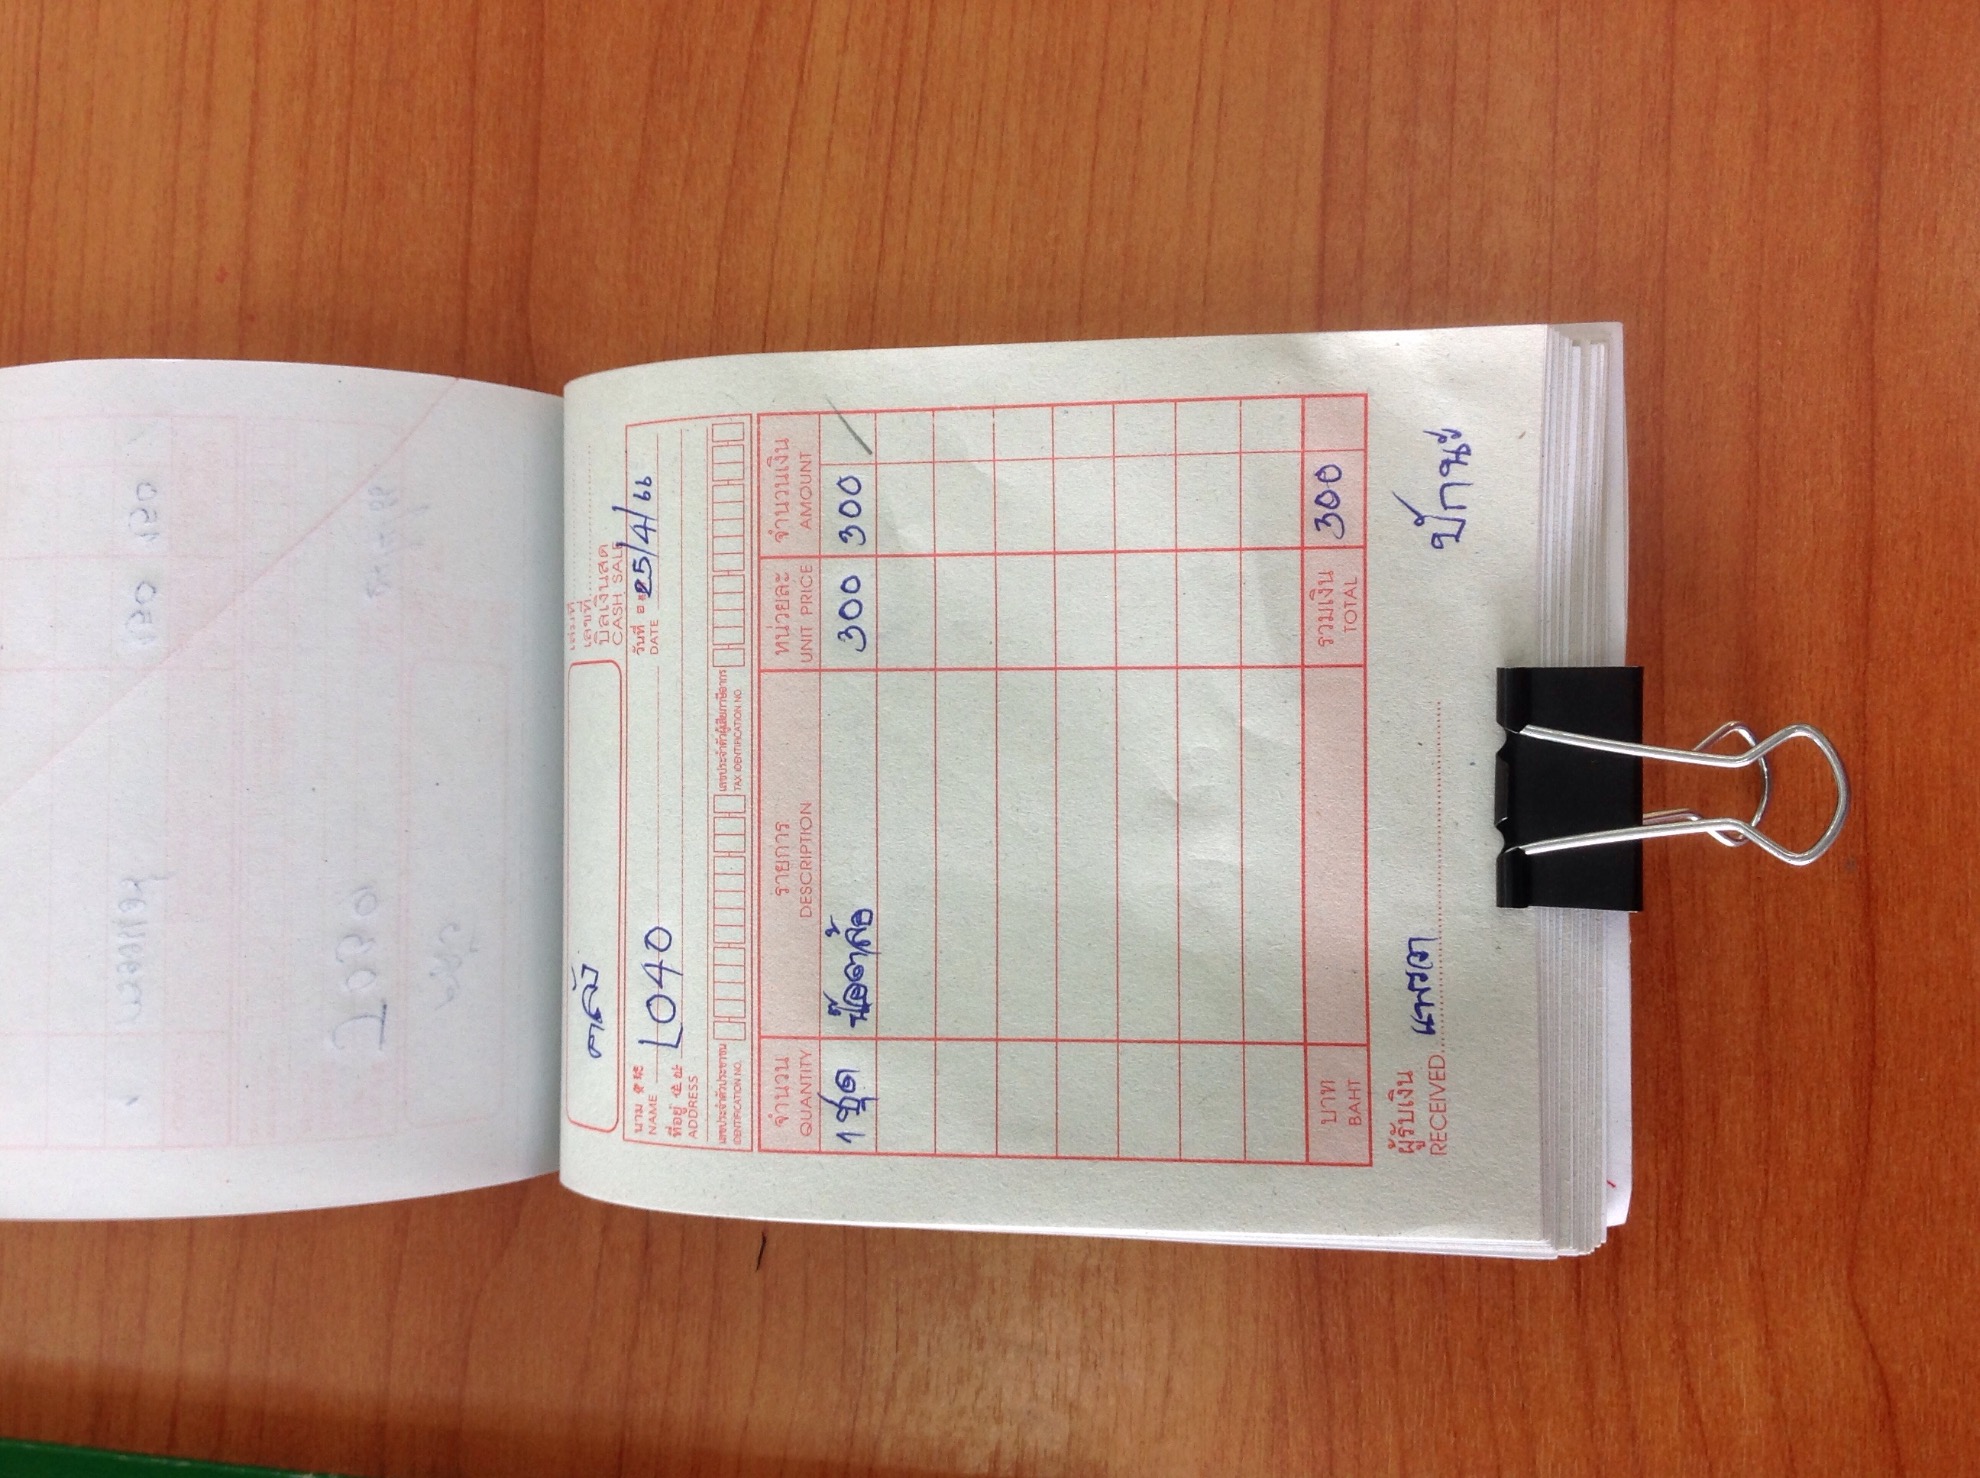 คลัง
เล่มที่
เลขที่
บิลเงินสด
CASH SALE
นาม
NAME
L040
วันที่ 25/4/66
DATE
ที่อยู่
ADDRESS
เลขประจำตัวประชาชน
IDENTIFICATION NO.
เลขประจำตัวผู้เสียภาษีอากร
TAX IDENTIFICATION NO.
จำนวน รายการ หน่วยละ จำนวนเงิน
QUANTITY DESCRIPTION UNIT PRICE AMOUNT
1 ชุด น๊อตล้อ 300 300
บาท รวมเงิน 300
BAHT TOTAL
ผู้รับเงิน
RECEIVED
แพรวา